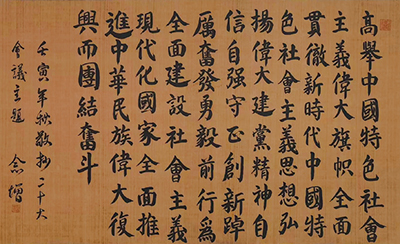 高舉中國特色社會
主義偉大旗幟全面
貫徹新時代中國特
色社會主義思想弘
揚偉大建黨精神自
信自强守正創新踔
厲奮發勇毅前行爲
全面建設社會主義
現代化國家全面推
進中華民族偉大復
興而團結奮斗
壬寅年秋敬抄二十大
會議主題